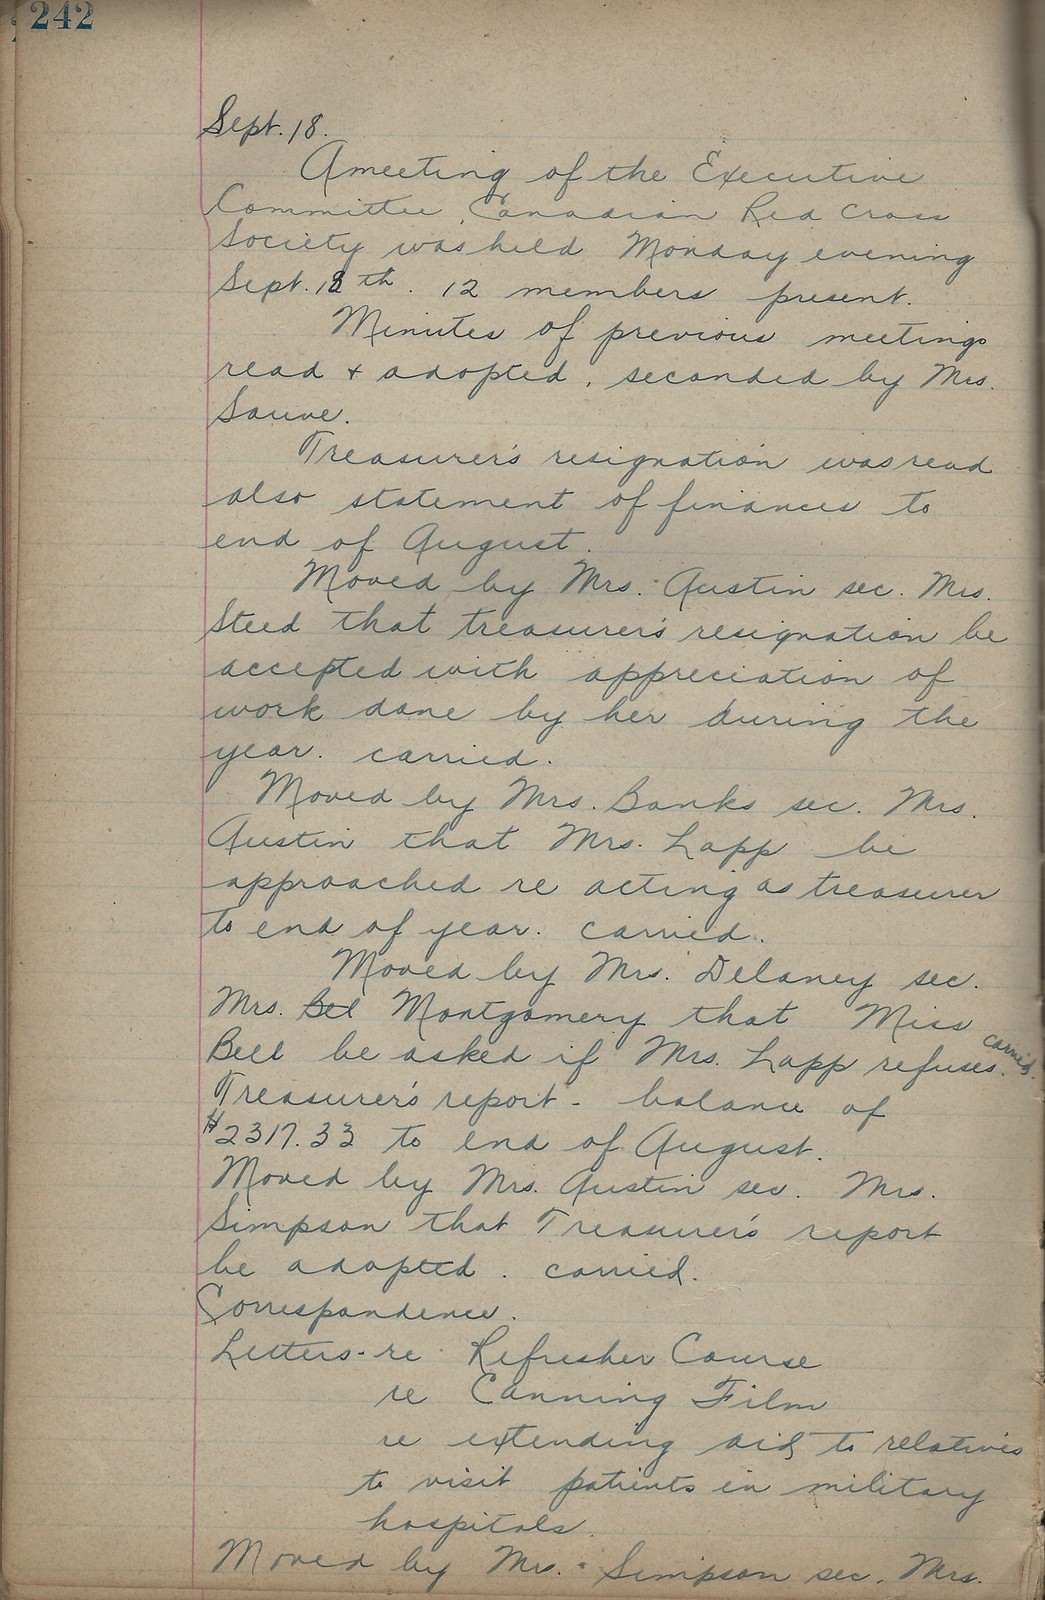 242
Sept. 18.
A meeting of the Executive
Committee, Canadian Red Cross
Society was held Monday evening
Sept. 18th. 12 members present.
Minutes of previous meetings
read + adopted, seconded by Mrs.
Sauve.
Treasurer's resignation was read
also statement of finances to
end of August.
Moved by Mrs. Austin sec. Mrs.
Steed that treasurer's resignation be
accepted with appreciation of
work done by her during the
year. carried.
Moved by Mrs. Banks sec. Mrs.
Austin that Mrs. Lapp be
approached re acting as treasurer
to end of year. carried.
Moved by Mrs. Delaney sec.
Mrs. Bel Montgomery that Miss
Bell be asked if Mrs. Lapp refuses. carried.
Treasurer's report - balance of
$2317.33 to end of August.
Moved by Mrs. Austin sec. Mrs.
Simpson that Treasurer's report
be adopted. carried.
Correspondence.
Letters - re Refresher Course
re Canning Film
re extending aid to relatives
to visit patients in military
hospitals.
Moved by Mrs. Simpson sec. Mrs.